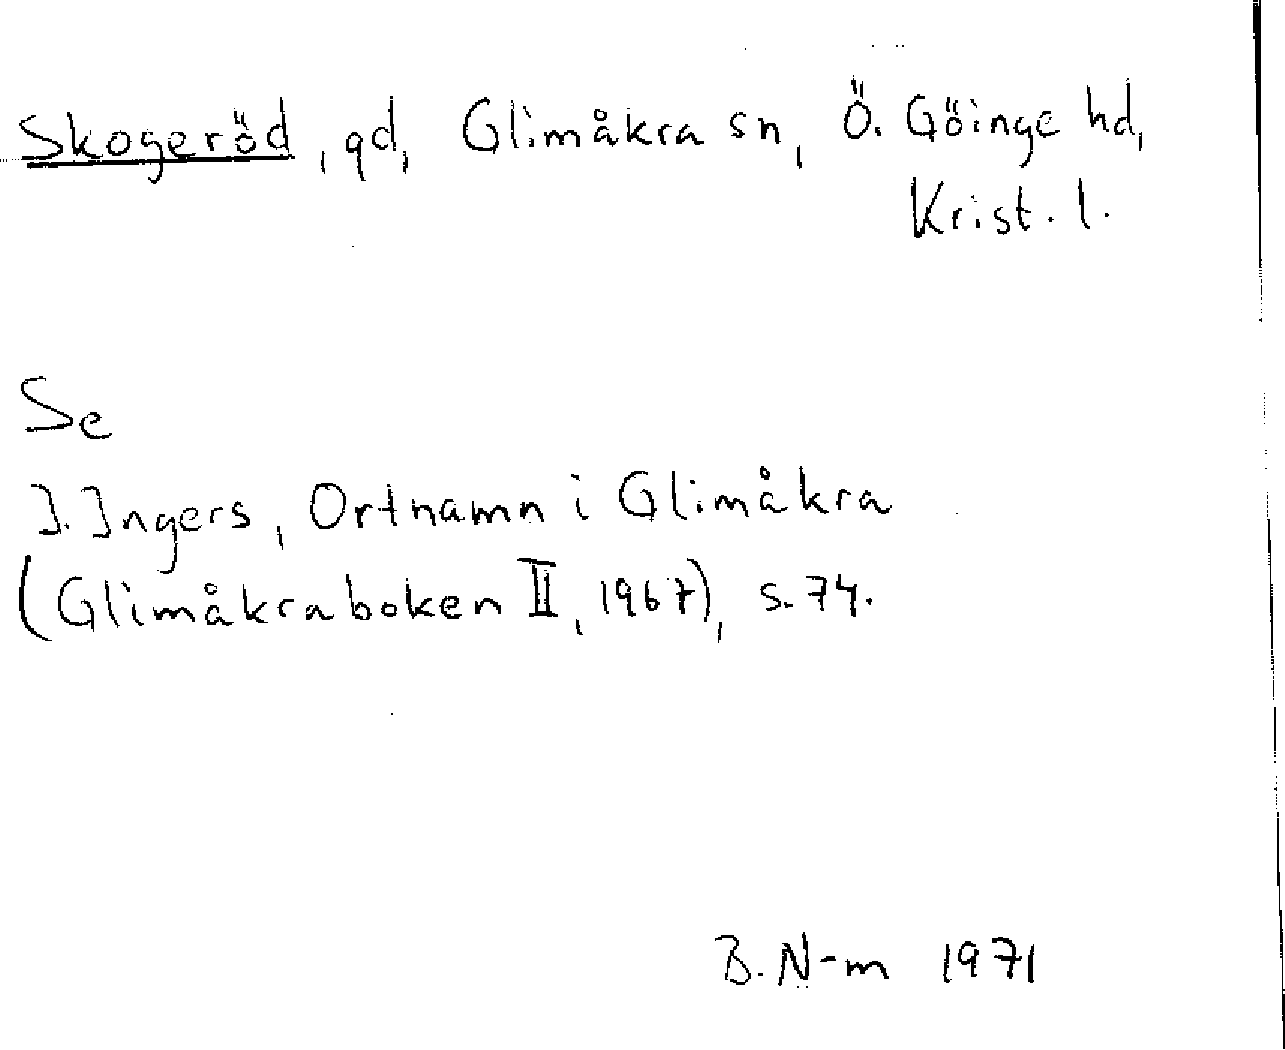 Skogeröd, gd, Glimåkra sn, Ö. Göinge hd,
Krist. l.
Se
I. Ingers, Ortnamn i Glimåkra
(Glimåkraboken II, 1967), s. 74.
B. N-m 1971